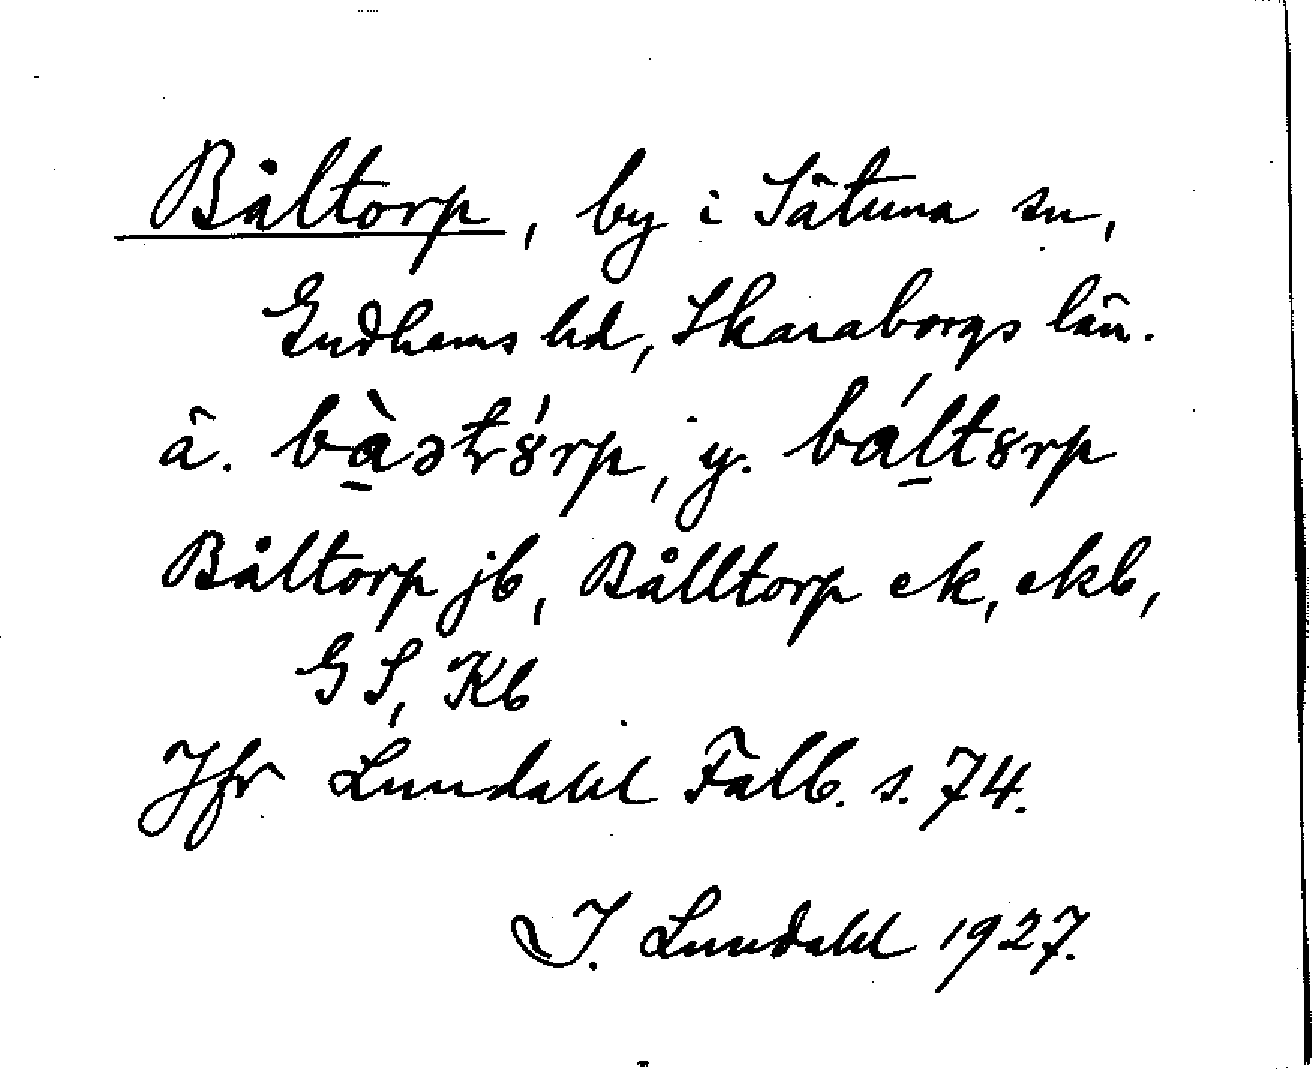 Båltorp, by i Sätuna sn,
Gudhems hd, Skaraborgs län.
ä. bàət8́rp, y. bált8rp
Båltorp jb, Bålltorp ek, ekb,
GS, Kb
Jfr Lundahl Falb. s. 74.
I. Lundahl 1927.